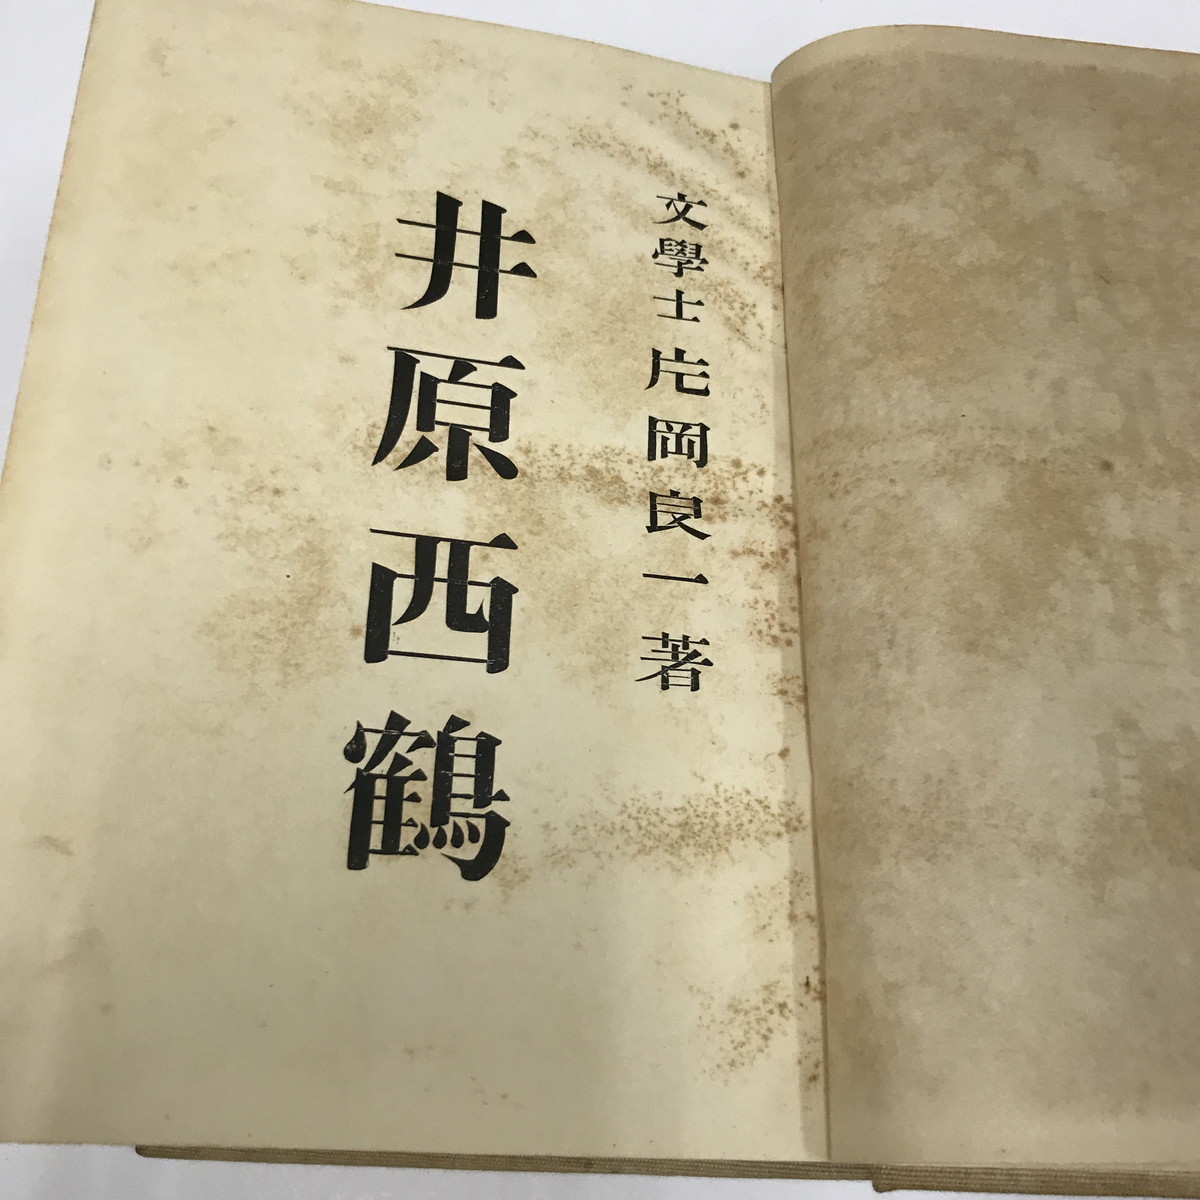 文學士片岡良一著
井原西鶴